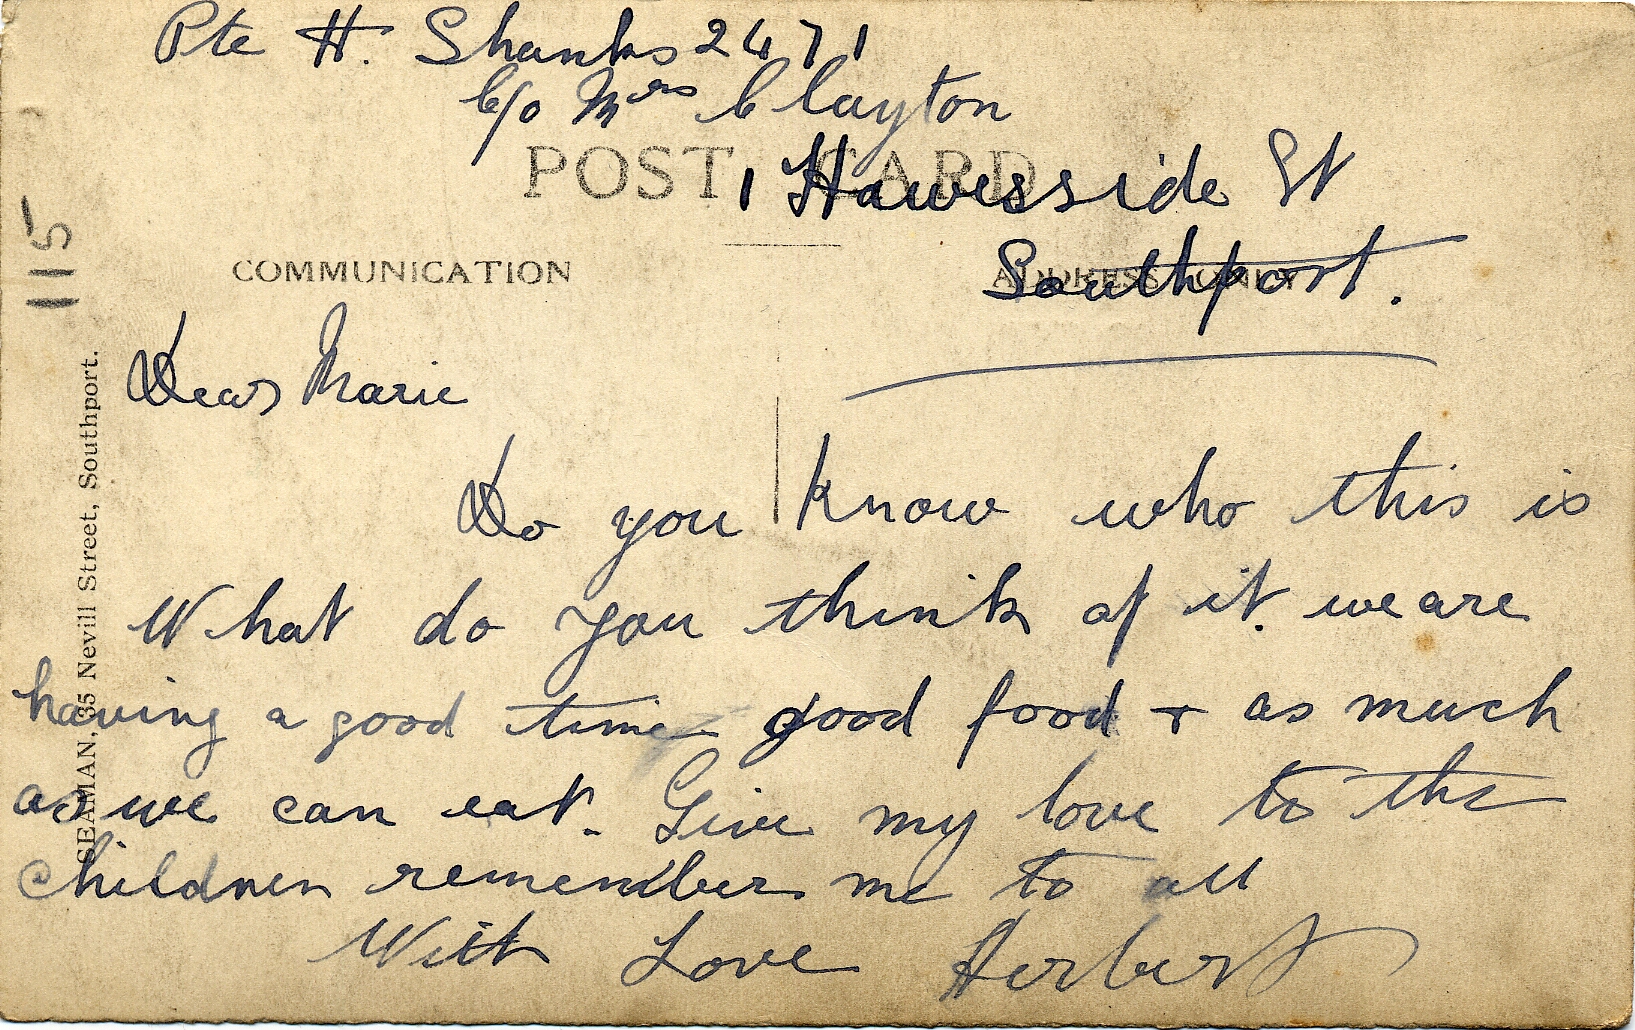 Pte H. Shanks 2471
C/o Mrs Clayton
POST CARD
1 Hawesside St
COMMUNICATION
ADDRESS ONLY
Southport.
Dear Marie
Do you know who this is
What do you think of it. we are
having a good time good food + as much
as we can eat. Give my love to the
children remember me to all
With Love Herbert
115
SEAMAN, 35 Nevill Street, Southport.